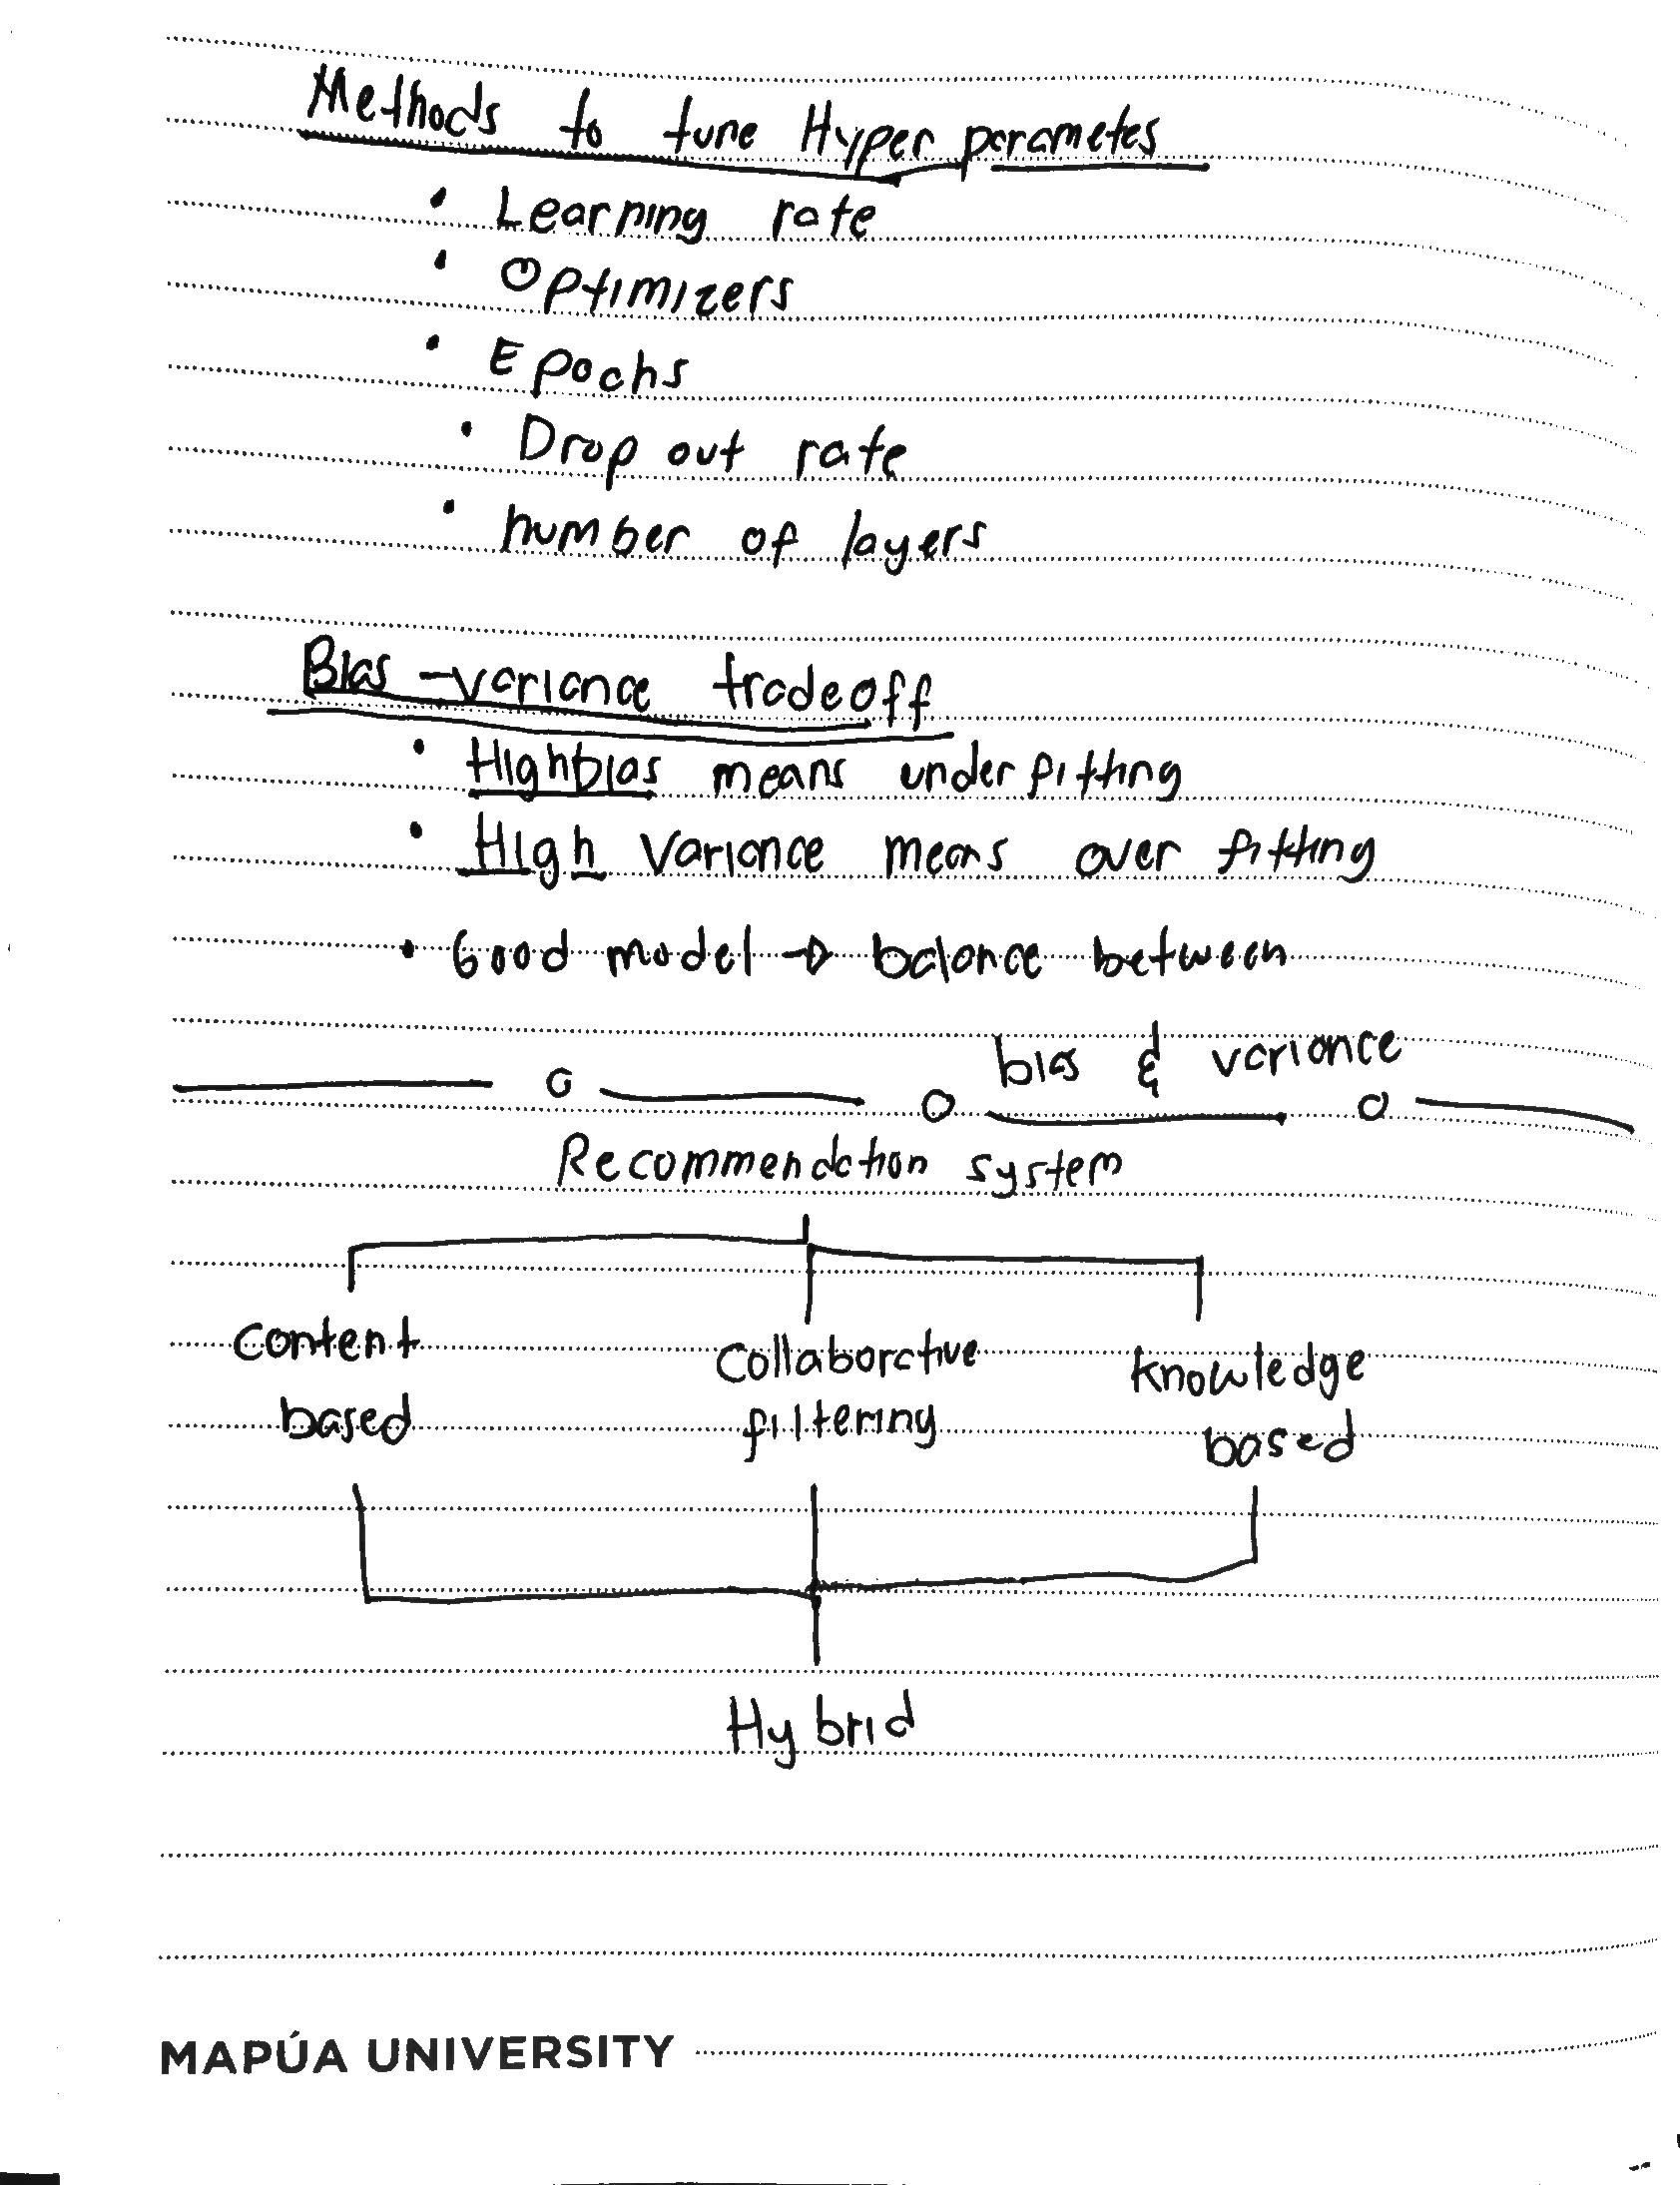 Methods to tune Hyper parametes
• Learning rate
• Optimizers
• Epochs
• Drop out rate
• number of layers
Bias - variance tradeoff
• High bias means underfitting
• High Variance means over fitting
• Good model → balance between
bias & variance
Recommendation system
Content
based
Collaborative
filtering
knowledge
based
Hybrid
MAPÚA UNIVERSITY